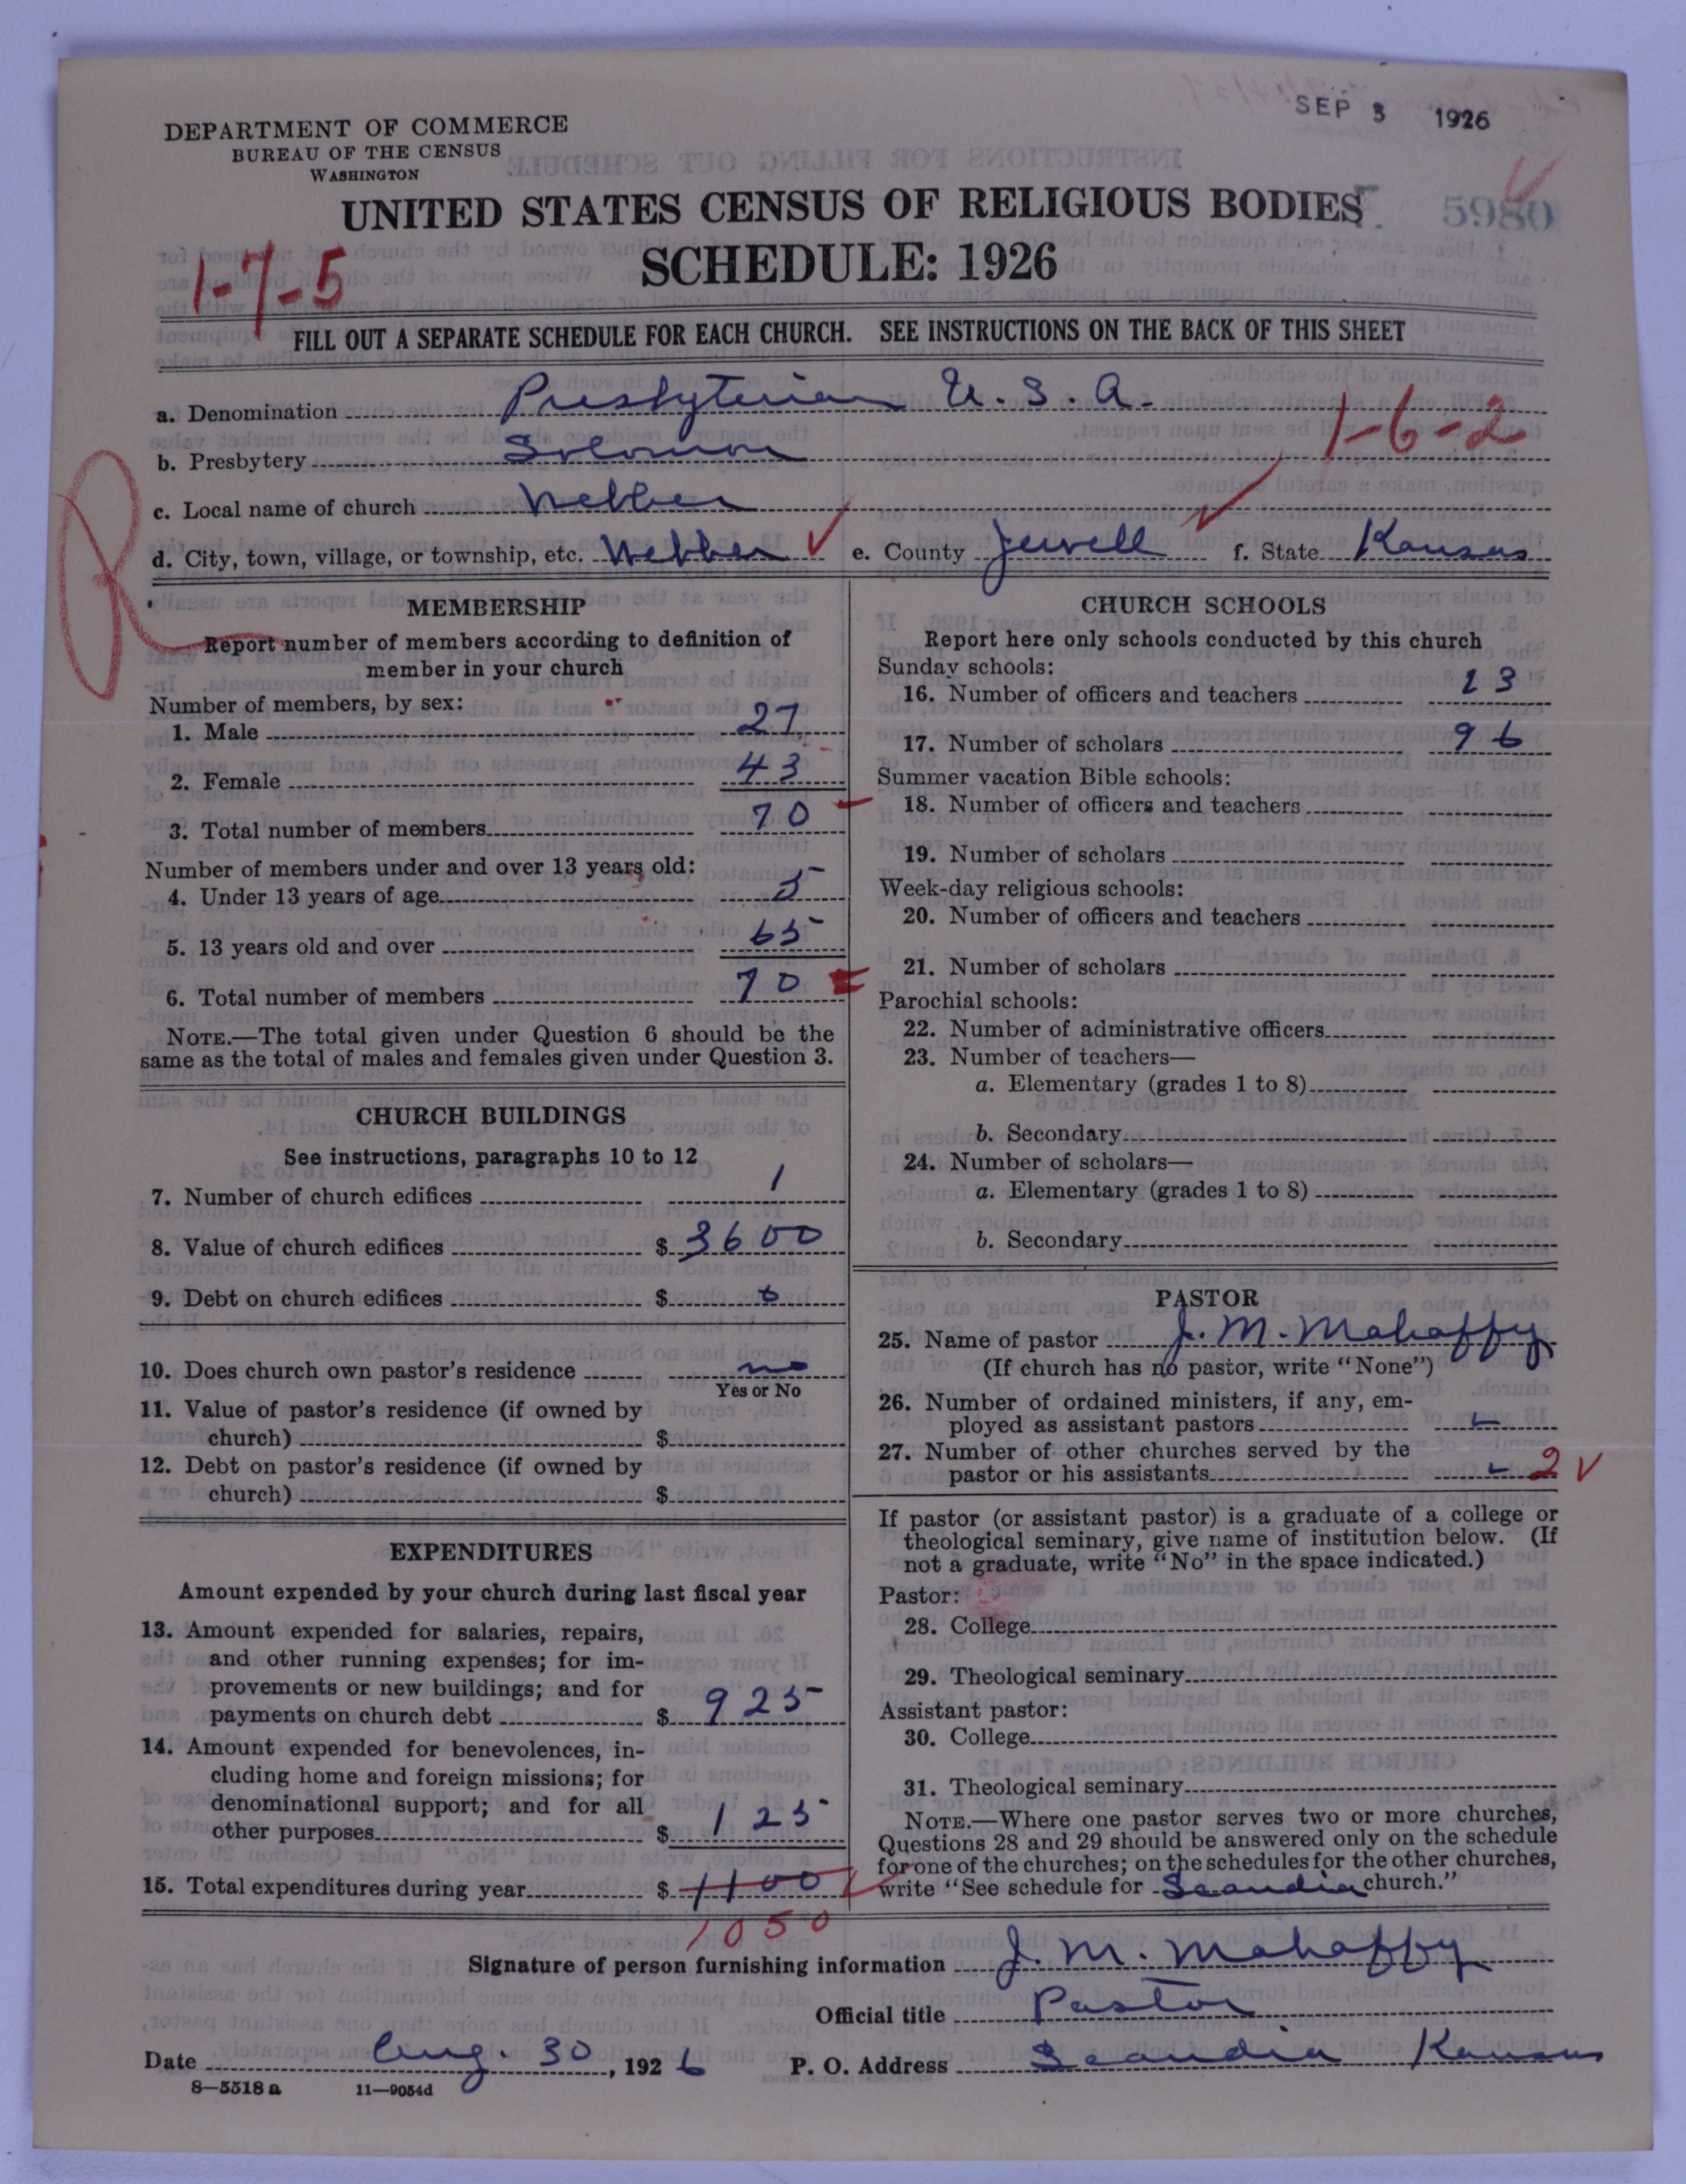 SEP 3 1926
DEPARTMENT OF COMMERCE
BUREAU OF THE CENSUS
WASHINGTON
UNITED STATES CENSUS OF RELIGIOUS BODIES
5980
SCHEDULE: 1926
1-7-5
FILL OUT A SEPARATE SCHEDULE FOR EACH CHURCH. SEE INSTRUCTIONS ON THE BACK OF THIS SHEET
a. Denomination Presbyterian U. S. A.
1-6-2
b. Presbytery Solomon
c. Local name of church Webber
d. City, town, village, or township, etc. Webber ✓ e. County Jewell f. State Kansas
R
MEMBERSHIP
Report number of members according to definition of
member in your church
Number of members, by sex:
1. Male 27
2. Female 43
3. Total number of members 70
Number of members under and over 13 years old:
4. Under 13 years of age 5
5. 13 years old and over 65
6. Total number of members 70
NOTE.—The total given under Question 6 should be the
same as the total of males and females given under Question 3.
CHURCH BUILDINGS
See instructions, paragraphs 10 to 12
7. Number of church edifices 1
8. Value of church edifices $ 3600
9. Debt on church edifices $ 0
10. Does church own pastor's residence no
Yes or No
11. Value of pastor's residence (if owned by
church) $
12. Debt on pastor's residence (if owned by
church) $
EXPENDITURES
Amount expended by your church during last fiscal year
13. Amount expended for salaries, repairs,
and other running expenses; for im-
provements or new buildings; and for
payments on church debt $ 925
14. Amount expended for benevolences, in-
cluding home and foreign missions; for
denominational support; and for all
other purposes $ 125
15. Total expenditures during year $ 1100
1050
CHURCH SCHOOLS
Report here only schools conducted by this church
Sunday schools:
16. Number of officers and teachers 13
17. Number of scholars 96
Summer vacation Bible schools:
18. Number of officers and teachers
19. Number of scholars
Week-day religious schools:
20. Number of officers and teachers
21. Number of scholars
Parochial schools:
22. Number of administrative officers
23. Number of teachers—
a. Elementary (grades 1 to 8)
b. Secondary
24. Number of scholars—
a. Elementary (grades 1 to 8)
b. Secondary
PASTOR
25. Name of pastor J. M. Mahaffy
(If church has no pastor, write "None")
26. Number of ordained ministers, if any, em-
ployed as assistant pastors
27. Number of other churches served by the
pastor or his assistants 2 ✓
If pastor (or assistant pastor) is a graduate of a college or
theological seminary, give name of institution below. (If
not a graduate, write "No" in the space indicated.)
Pastor:
28. College
29. Theological seminary
Assistant pastor:
30. College
31. Theological seminary
NOTE.—Where one pastor serves two or more churches,
Questions 28 and 29 should be answered only on the schedule
for one of the churches; on the schedules for the other churches,
write "See schedule for Scandia church."
Signature of person furnishing information J. M. Mahaffy
Official title Pastor
Date Aug. 30, 1926 P. O. Address Scandia Kansas
8—5518 a 11—9054d